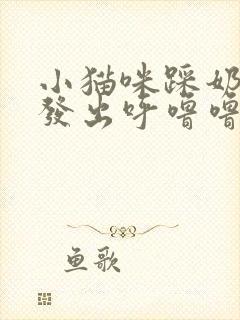 小猫咪踩奶
發出呼噜噜
鱼歌